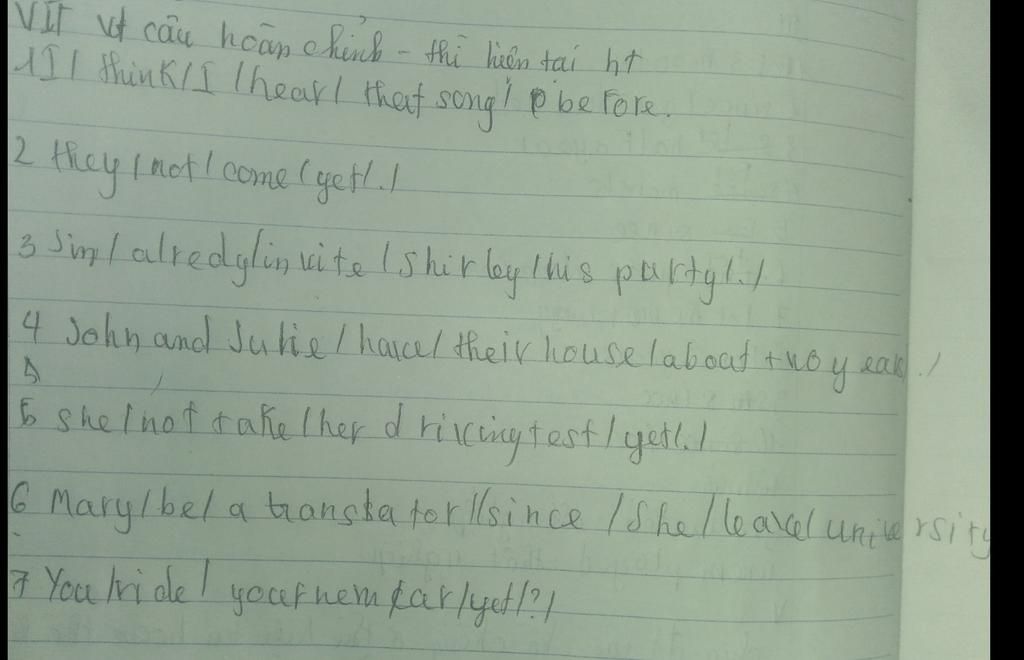 VII Vt câu hoàn chỉnh - thì hiện tại ht
1 I / think / I / hear / that song / before.
2 they / not / come / yet / . /
3 Jim / alredy / invite / Shirley / his party / . /
4 John and Julie / have / their house / about two year . /
5
5 she / not take / her driving test / yet / . /
6 Mary / be / a translator // since / She / leave / university
7 You / ride / your new car / yet / ? /